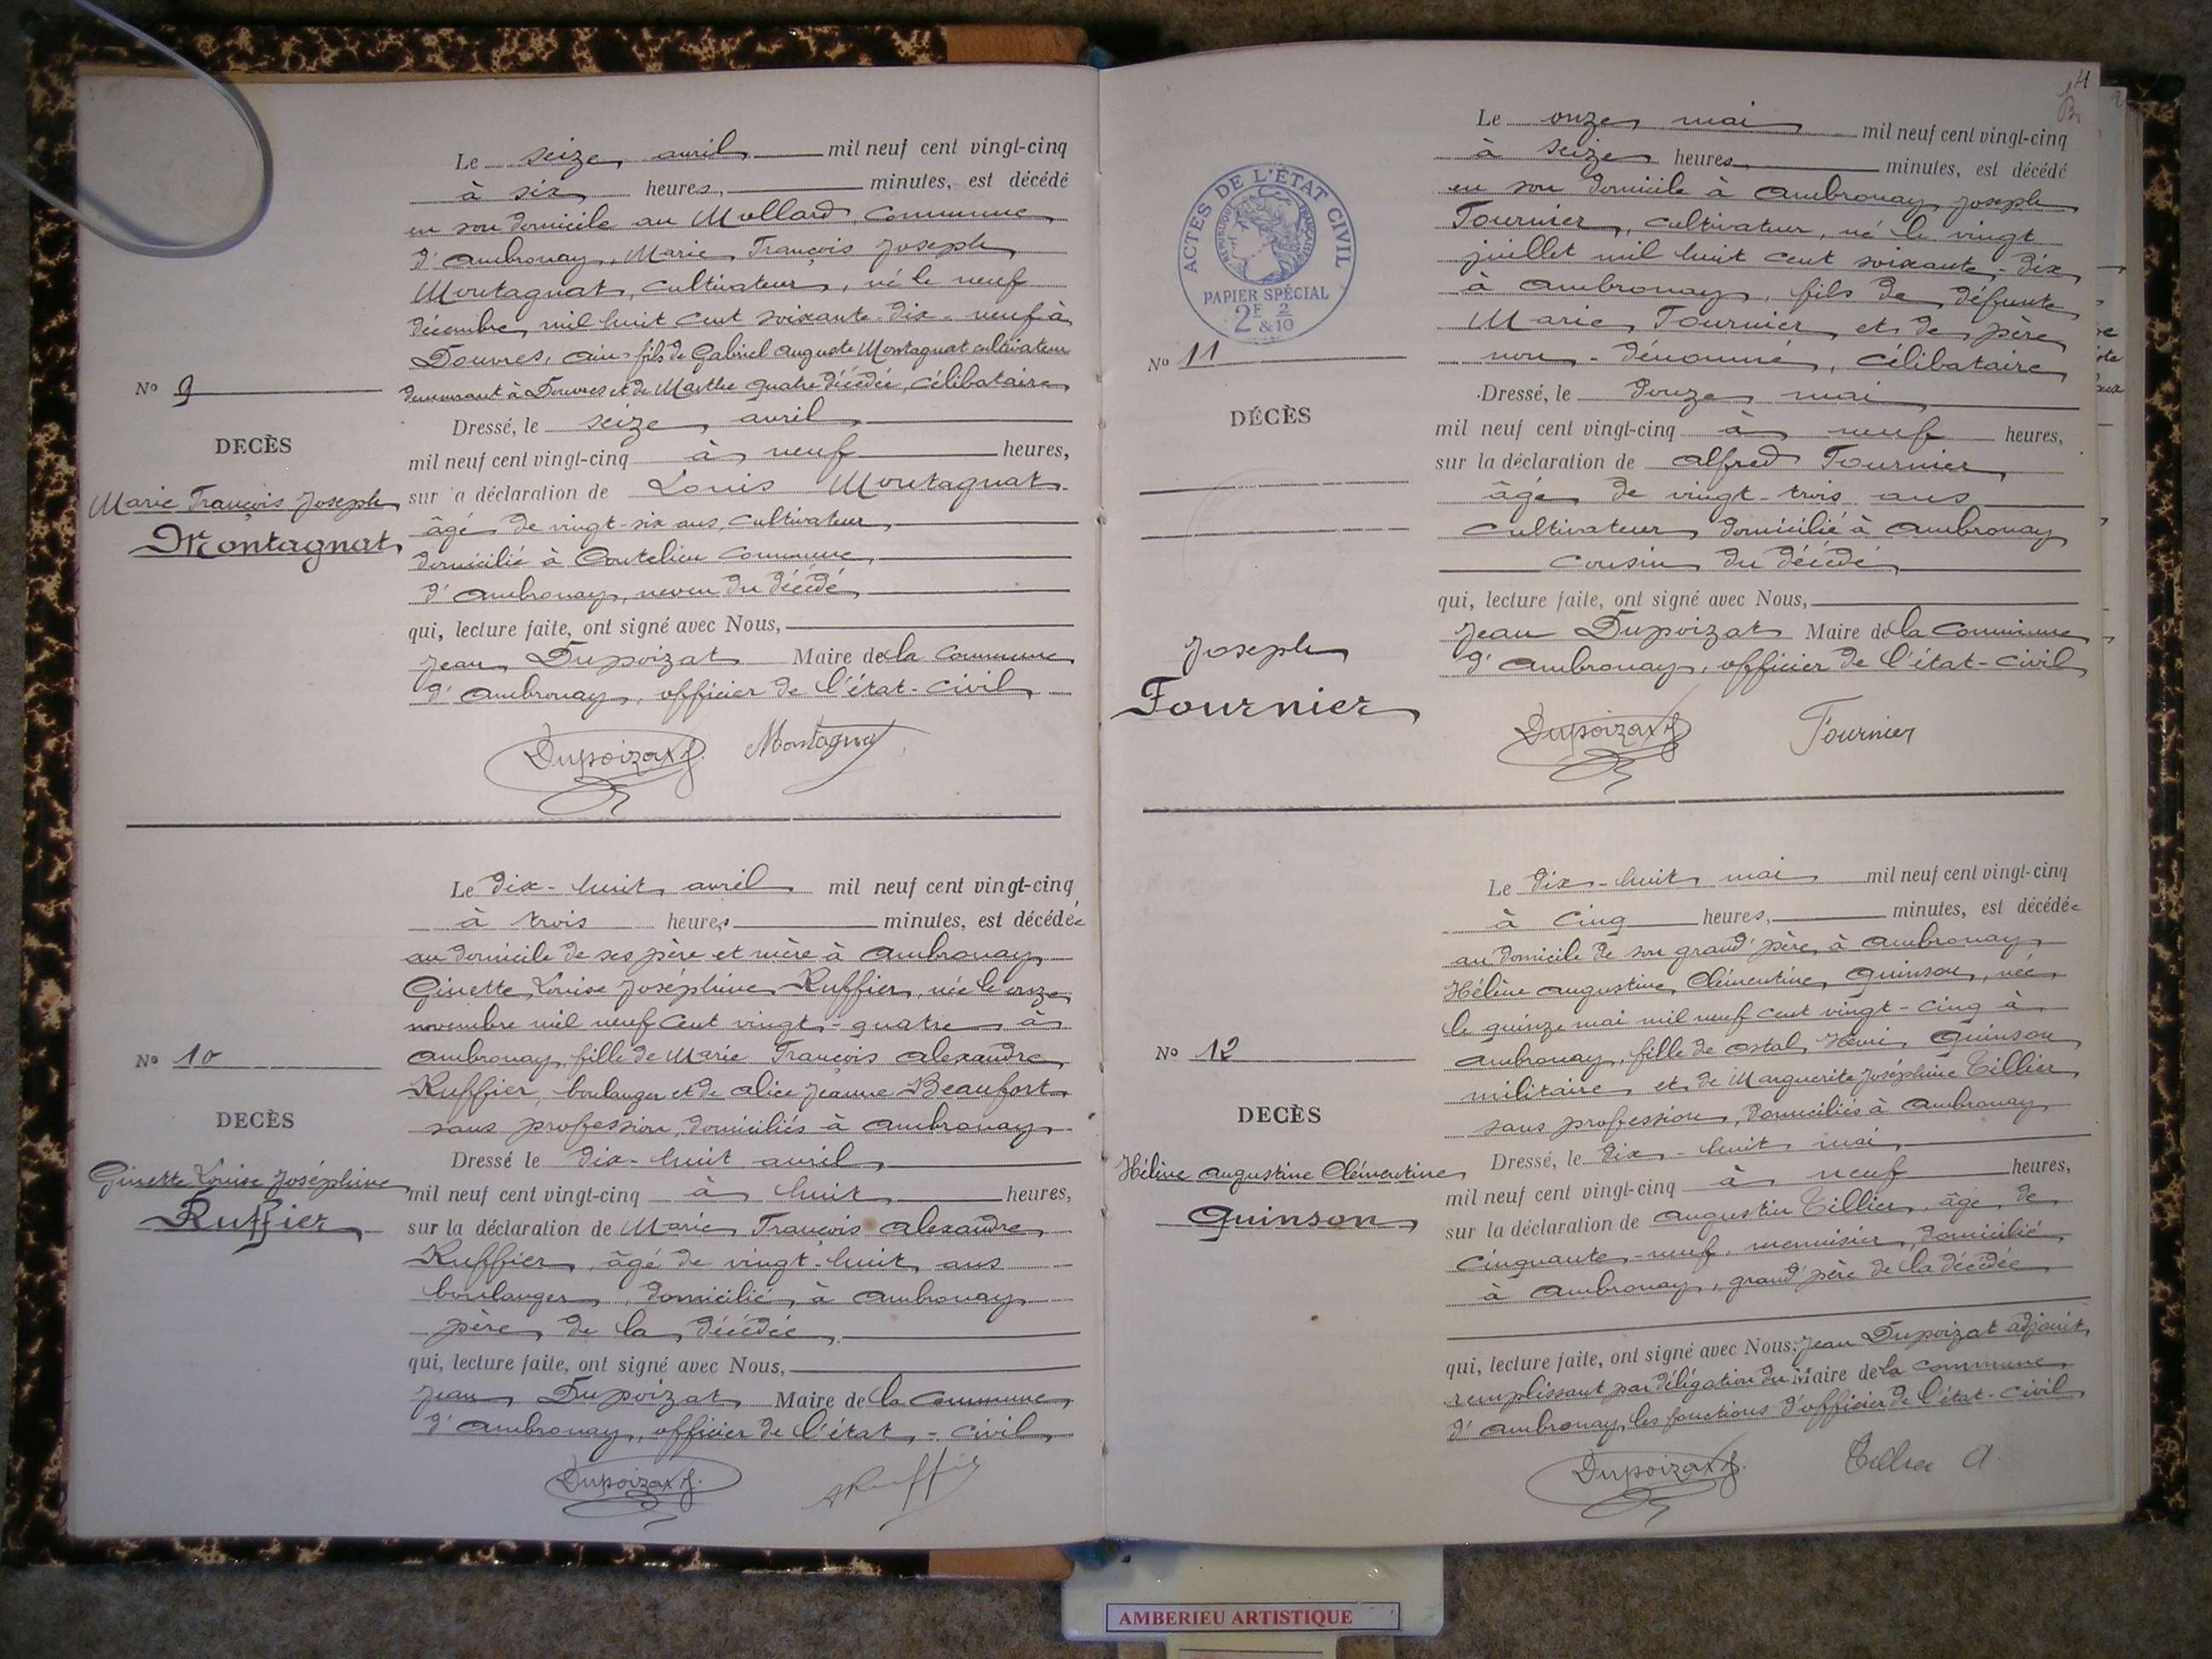 Le seize avril mil neuf cent vingt-cinq
à six heures, minutes, est décédé
en son domicile au Mollard, commune
d'Ambronay, Marie François Joseph
Montagnat, cultivateur, né le neuf
décembre mil huit cent soixante-dix-neuf à
Douvres, ain, fils de Gabriel Auguste Montagnat cultivateur
demeurant à Douvres et de Marthe Quatre décédée, célibataire
No 9
DECÈS
Marie François Joseph
Montagnat
Dressé, le seize avril
mil neuf cent vingt-cinq à neuf heures,
sur a déclaration de Louis Montagnat
âgé de vingt-six ans, cultivateur
domicilié à Coutelieu commune
d'Ambronay, neveu du décédé
qui, lecture faite, ont signé avec Nous,
Jean Dupoizat Maire de la Commune
d'Ambronay, officier de l'état-civil
Dupoizat J. Montagnat
Le dix-huit avril mil neuf cent vingt-cinq
à trois heures minutes, est décédée
au domicile de ses père et mère à Ambronay
Ginette Louise Joséphine Ruffier, née le onze
novembre mil neuf cent vingt-quatre à
Ambronay, fille de Marie François Alexandre
Ruffier, boulanger et de Alice Jeanne Beaufort
sans profession, domiciliés à Ambronay
No 10
DECÈS
Ginette Louise Joséphine
Ruffier
Dressé le dix-huit avril
mil neuf cent vingt-cinq à huit heures,
sur la déclaration de Marie François Alexandre
Ruffier, âgé de vingt-huit ans
boulanger, domicilié à Ambronay
père de la décédée
qui, lecture faite, ont signé avec Nous,
Jean Dupoizat Maire de la Commune
d'Ambronay, officier de l'état-civil
Dupoizat J. A Ruffier
4
ACTES DE L'ÉTAT CIVIL
RÉPUBLIQUE FRANÇAISE
PAPIER SPÉCIAL
2F & 2/10
Le onze mai mil neuf cent vingt-cinq
à seize heures minutes, est décédé
en son domicile à Ambronay Joseph
Fournier, cultivateur, né le vingt
juillet mil huit cent soixante-dix
à Ambronay, fils de défunte
Marie Fournier et de père
non-dénommé, célibataire
No 11
DÉCÈS
Joseph
Fournier
Dressé, le douze mai
mil neuf cent vingt-cinq à neuf heures,
sur la déclaration de Alfred Fournier
âgé de vingt-trois ans
cultivateur domicilié à Ambronay
cousin du décédé
qui, lecture faite, ont signé avec Nous,
Jean Dupoizat Maire de la Commune
d'Ambronay, officier de l'état-civil
Dupoizat J. Fournier
Le dix-huit mai mil neuf cent vingt-cinq
à cinq heures, minutes, est décédée
au domicile de son grand'père à Ambronay
Hélène Augustine Clémentine Quinson, née
le quinze mai mil neuf cent vingt-cinq à
Ambronay, fille de Ostal Henri Quinson
militaire et de Marguerite Joséphine Tillier
sans profession, domiciliés à Ambronay
No 12
DECÈS
Hélène Augustine Clémentine
Quinson
Dressé, le dix-huit mai
mil neuf cent vingt-cinq à neuf heures,
sur la déclaration de Augustin Tillier, âgé de
cinquante-neuf, menuisier, domicilié
à Ambronay, grand'père de la décédée
qui, lecture faite, ont signé avec Nous, Jean Dupoizat adjoint
remplissant par déligation du Maire de la commune
d'Ambronay les fonctions d'officier de l'état-civil
Dupoizat J. Tillier A.
AMBERIEU ARTISTIQUE